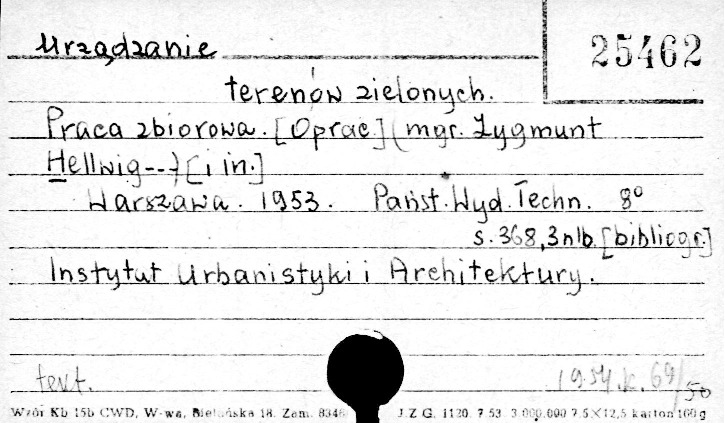 Urządzanie
25462
terenów zielonych.
Praca zbiorowa. [Oprac.] (mgr. Zygmunt
Hellwig--) [i in.]
Warszawa. 1953. Państ. Wyd. Techn. 8°
s. 368, 3 nlb. [bibliogr.]
Instytut Urbanistyki i Architektury.
1954.k. 69/50
Wzór Kb 15b CWD, W-wa, Bielańska 18. Zam. 8346 J.Z.G. 1120. 7.53. 3.000.000 7,5×12,5 karton 160 g